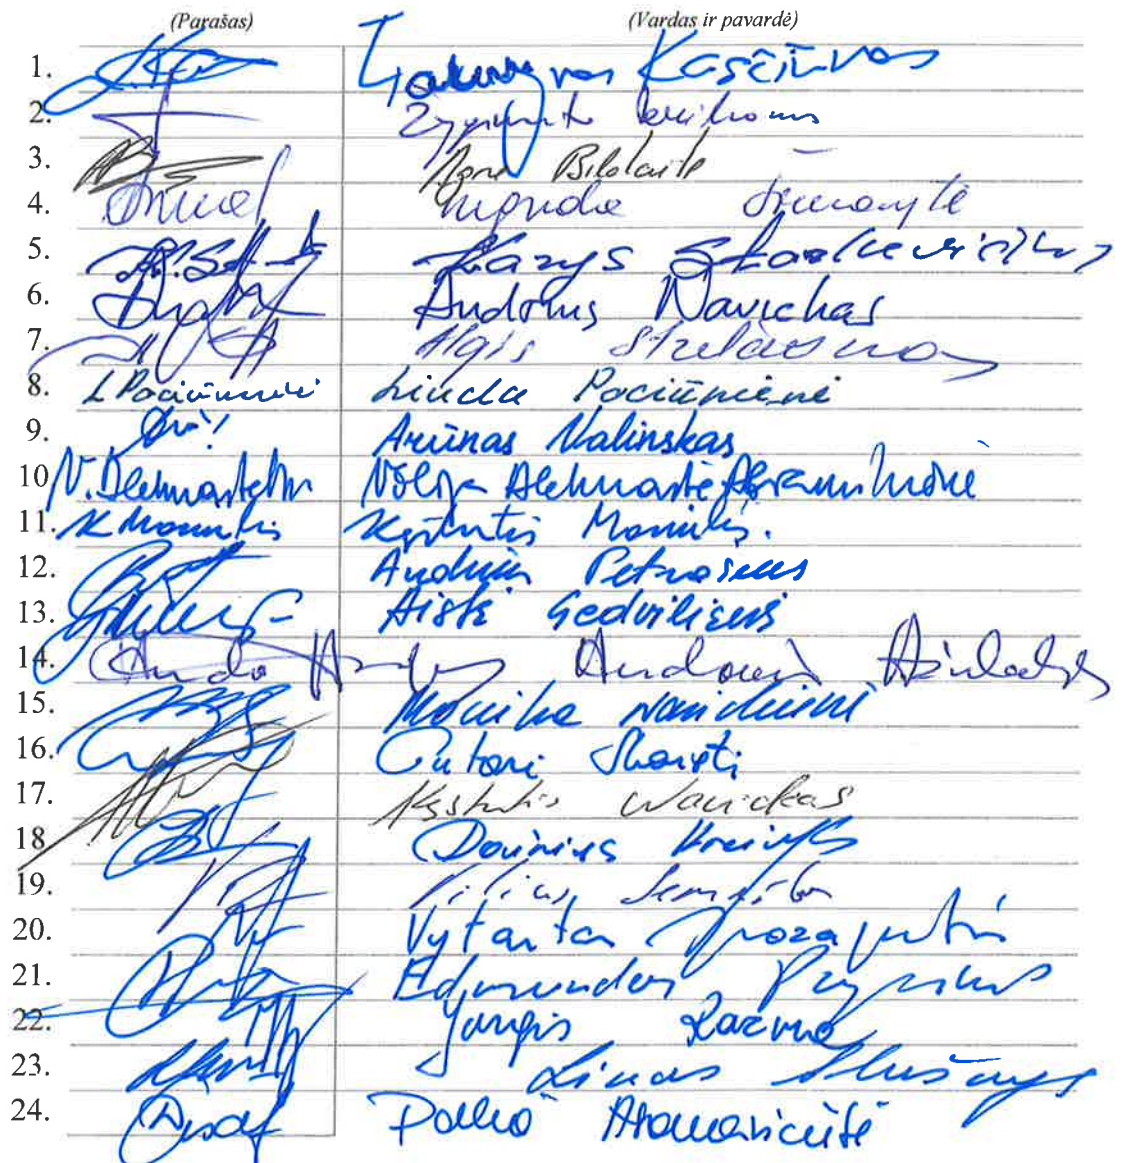 (Parašas) (Vardas ir pavardė)
1. Laurynas Kasčiūnas
2.
3. Agnė Bilotaitė
4. Ingrida Šimonytė
5. K. St Kazys Starkevičius
6. Andrius Navickas
7. Algis Strelčiūnas
8. L Pociūnienė Liuda Pociūnienė
9. Arūnas Valinskas
10. Vilija Aleknaitė Abramikienė
11. K Masiulis Kęstutis Masiulis.
12. Audrius Petrošius
13. Aistė Gedvilienė
14. Audronius Ažubalis
15. Monika Navickienė
16. Antanas
17. Kęstutis Navickas
18. Dainius Kreivys
19. Vilius Semeška
20. Vytautas Juozapaitis
21. Edmundas Pupinis
22. Jurgis Razma
23. Linas Slušnys
24. Dalia Asanavičiūtė